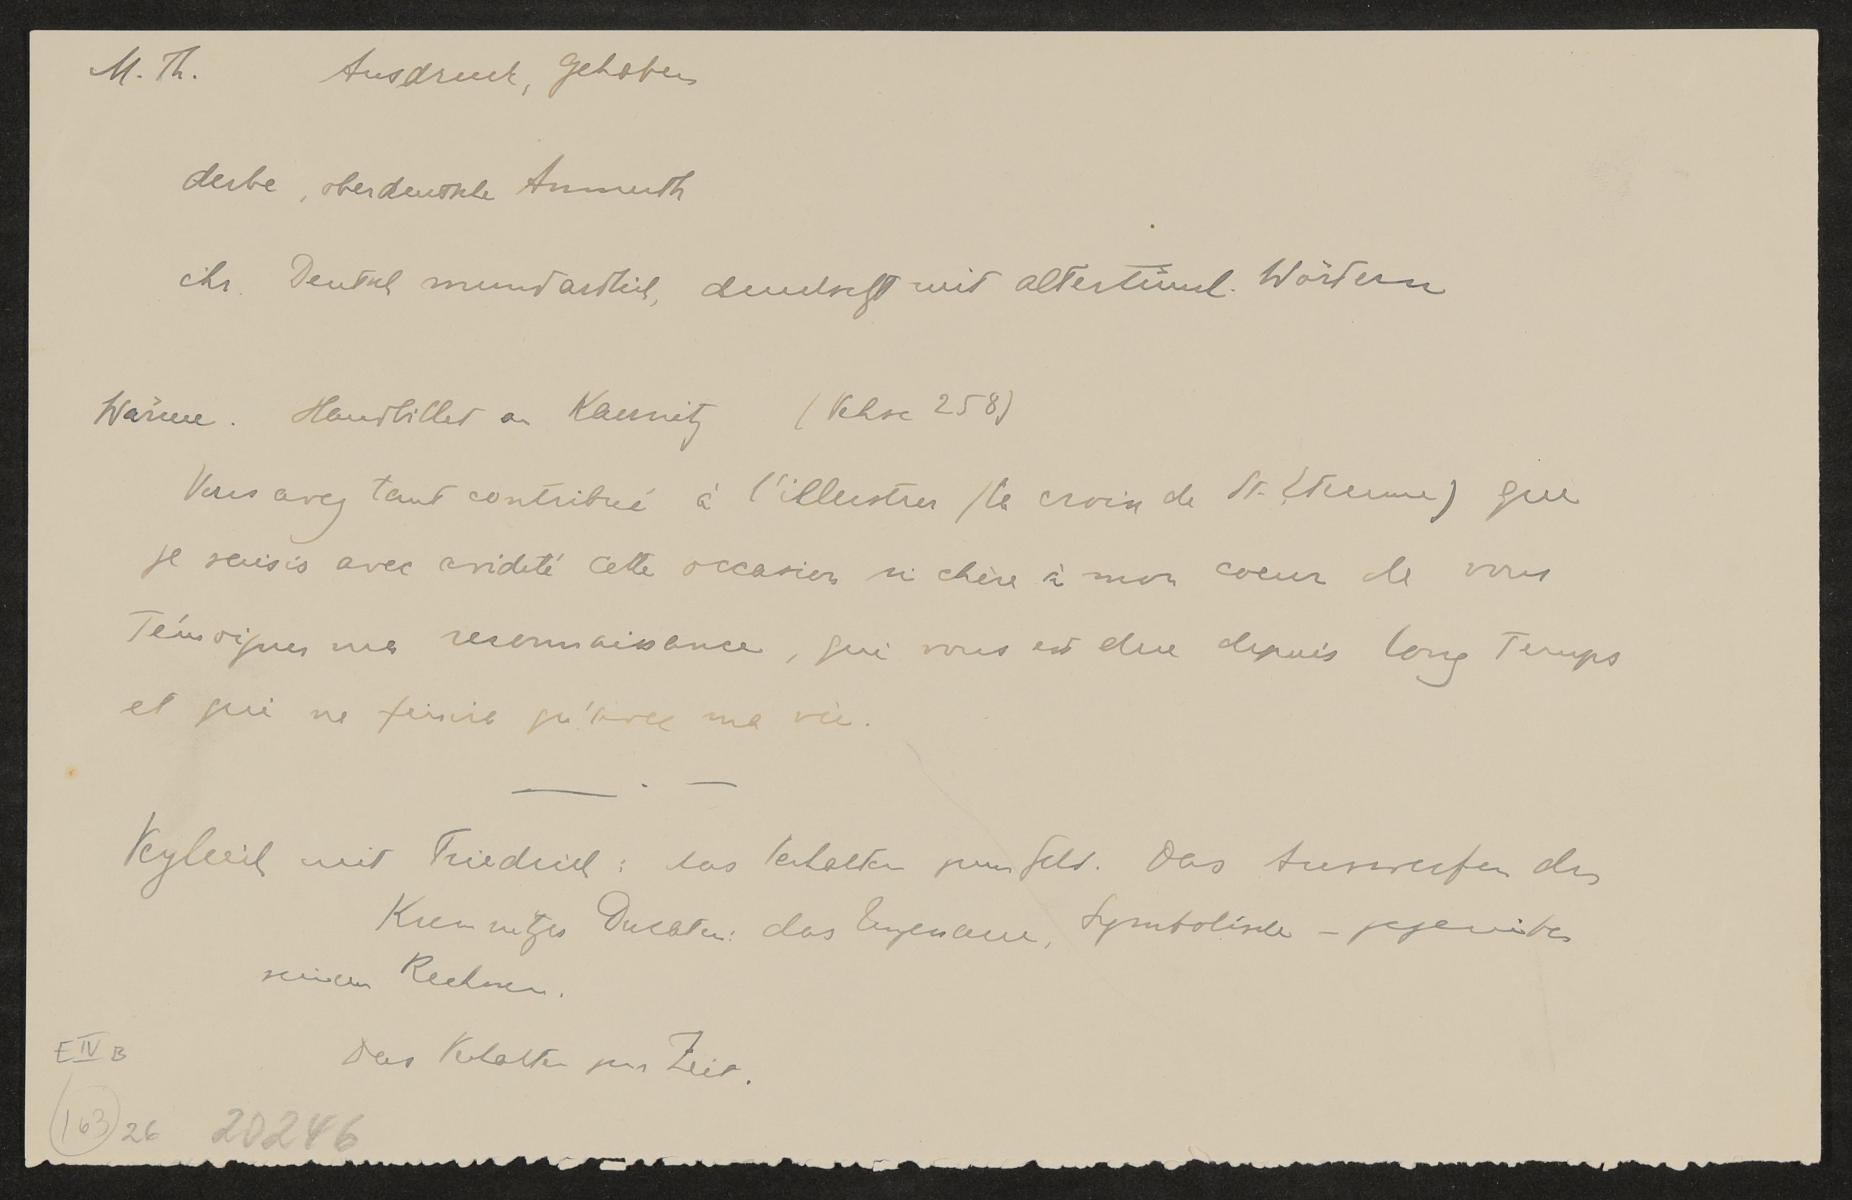 M. Th. Ausdruck, gehoben
derbe, oberdeutsche Anmuth
ihr Deutsch mundartlich, durchsetzt mit altertüml. Wörtern
Wärme. Handbillet an Kaunitz (Vehse 258)
Vous avez tant contribué à l'illustrer (la croix de St. Etienne) que
je saisis avec avidité cette occasion si chère à mon coeur de vous
témoigner ma reconnaissance, qui vous est due depuis long temps
et qui ne finira qu'avec ma vie.
Vergleich mit Friedrich: das Verhalten zum Geld. Das Auswerfen der
Kremnitzer Ducaten: das Ungenaue, Symbolische – gegenüber
seinem Rechnen.
Das Verhalten zur Zeit.
E IV B
163 26 20246